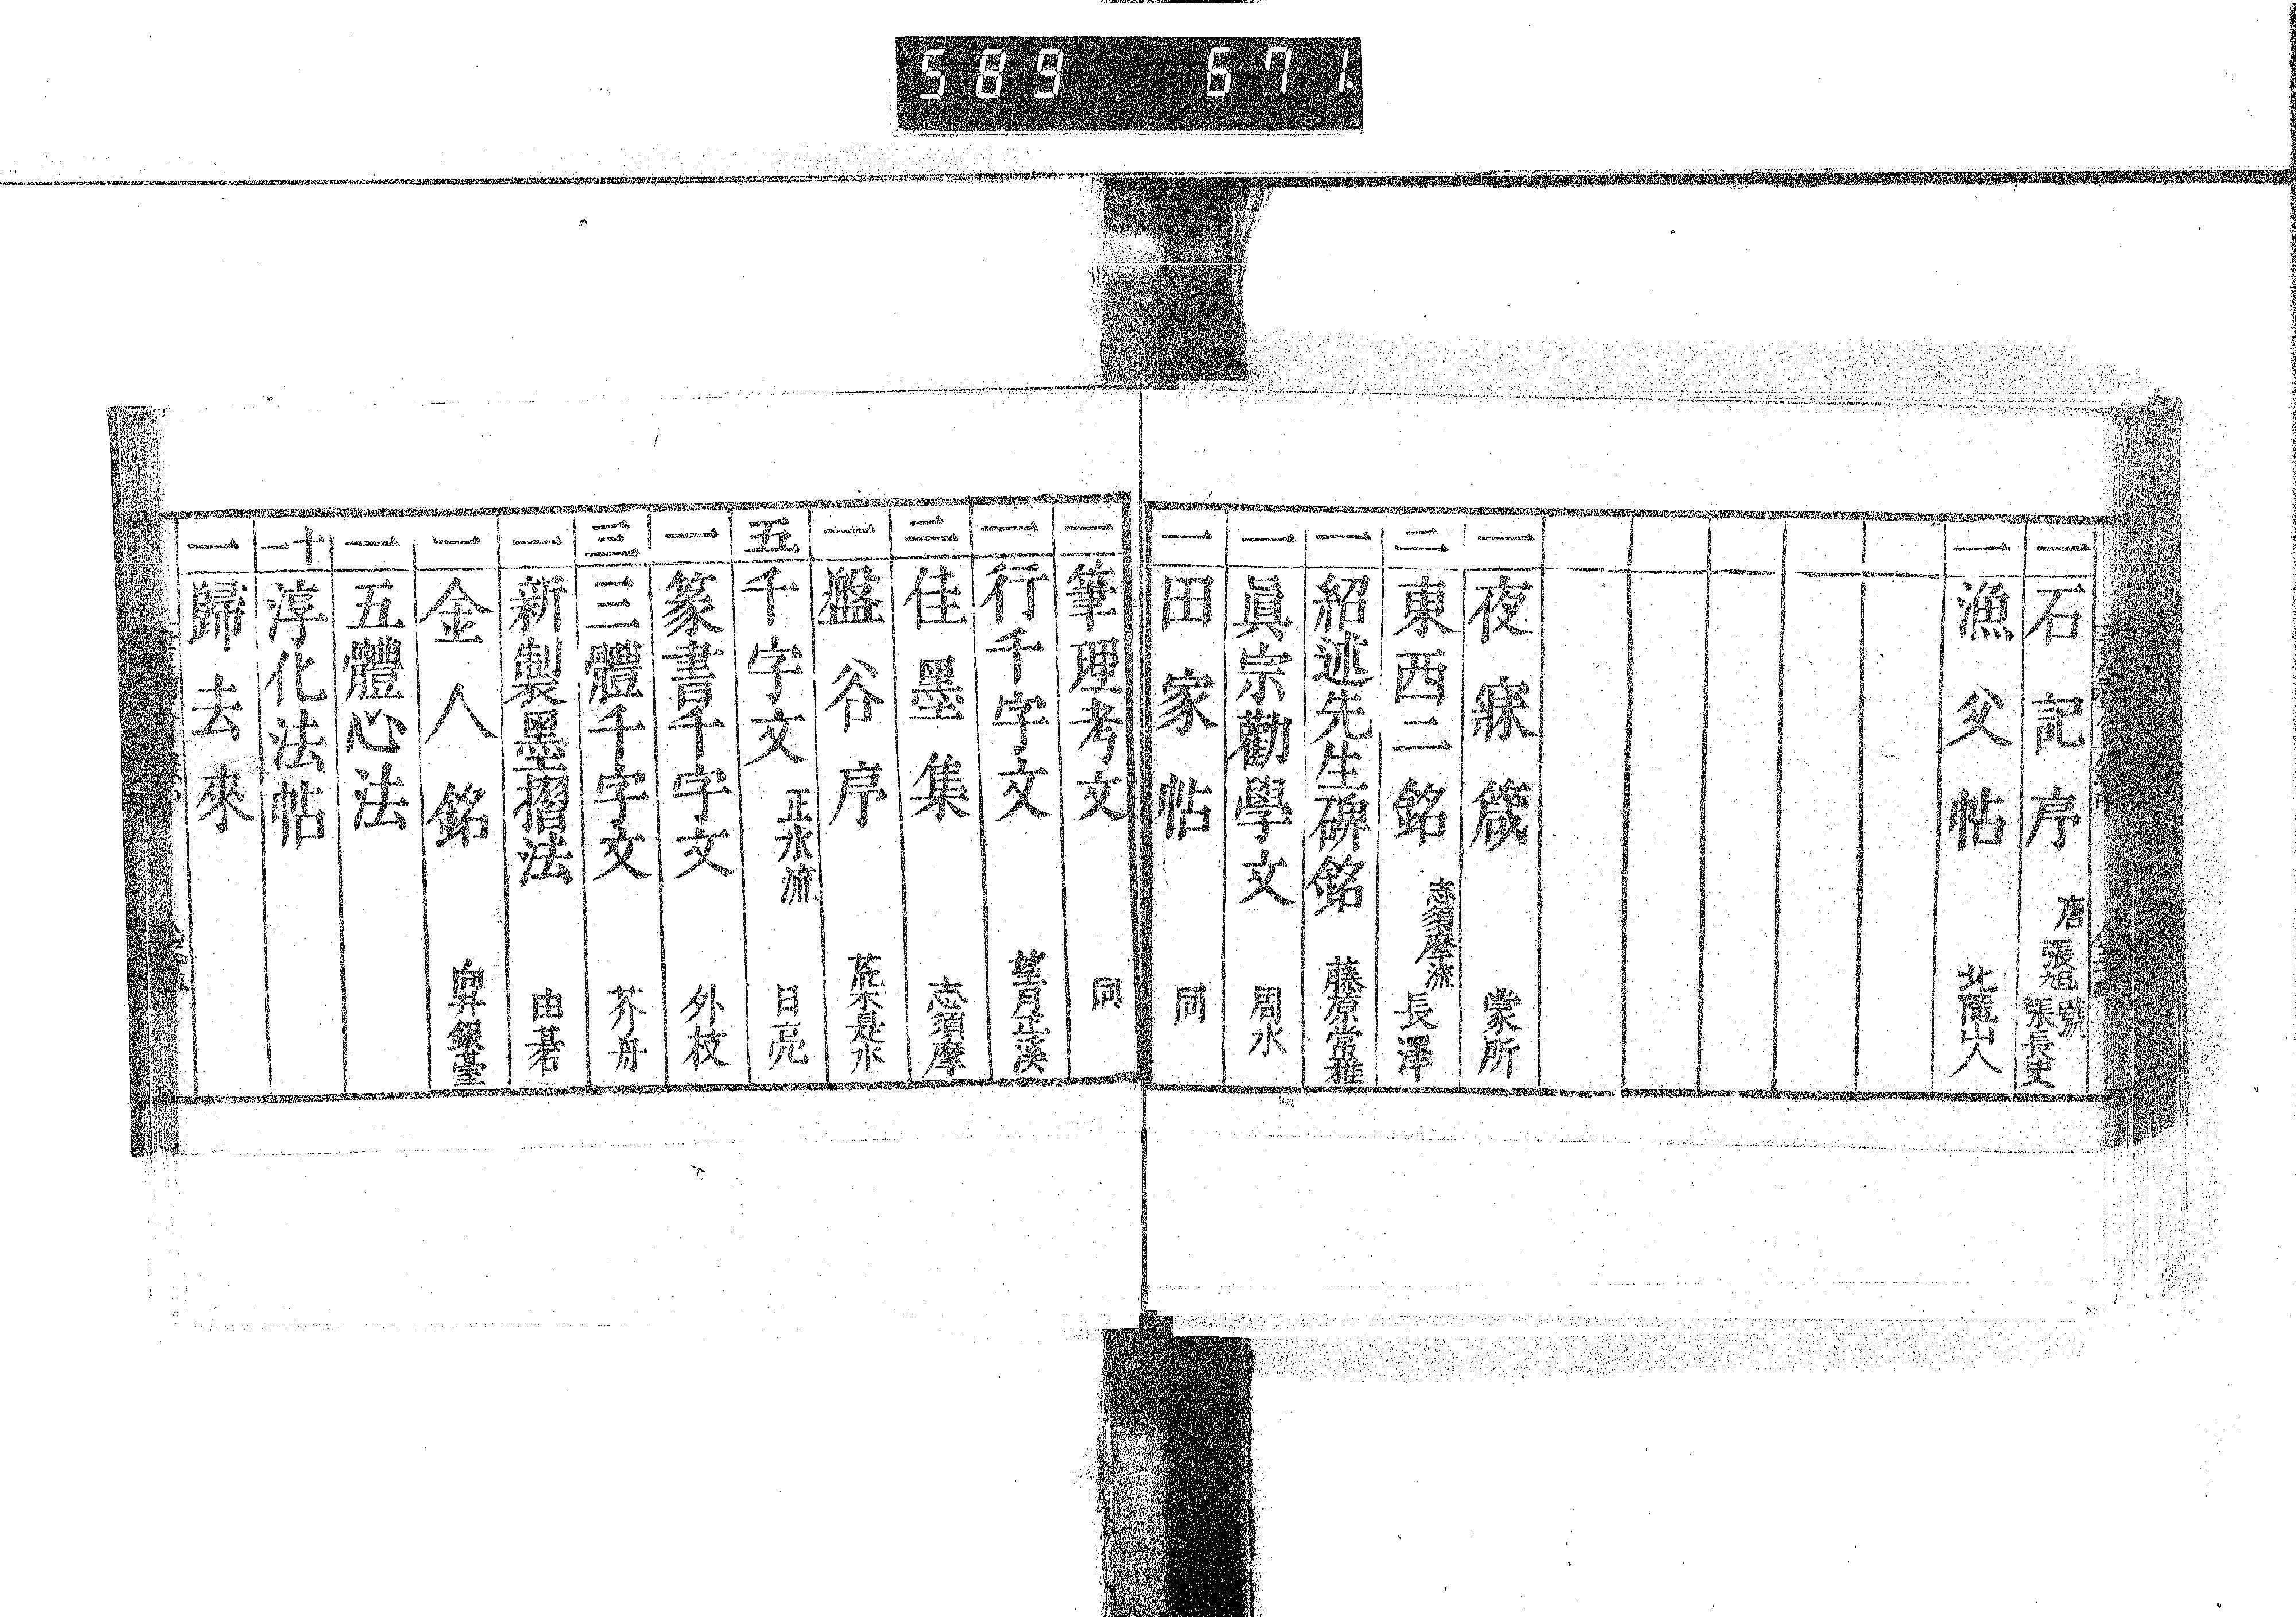 589 671
一 石記序 唐 張旭 號張長史
一 漁父帖 北隱山人
一 夜寐箴 蒙所
二 東西二銘 志須摩流 長澤
一 紹述先生碑銘 藤原常雅
一 眞宗勸學文 周水
一 田家帖 同
一 筆理考文 同
一 行千字文 望月正溪
三 佳墨集 志須摩
一 盤谷序 荒木是水
五 千字文 正水流 日亮
一 篆書千字文 外枝
三 三體千字文 芥舟
一 新製墨摺法 由碁
一 金人銘 向井銀臺
一 五體心法
十一 淳化法帖
一 歸去來